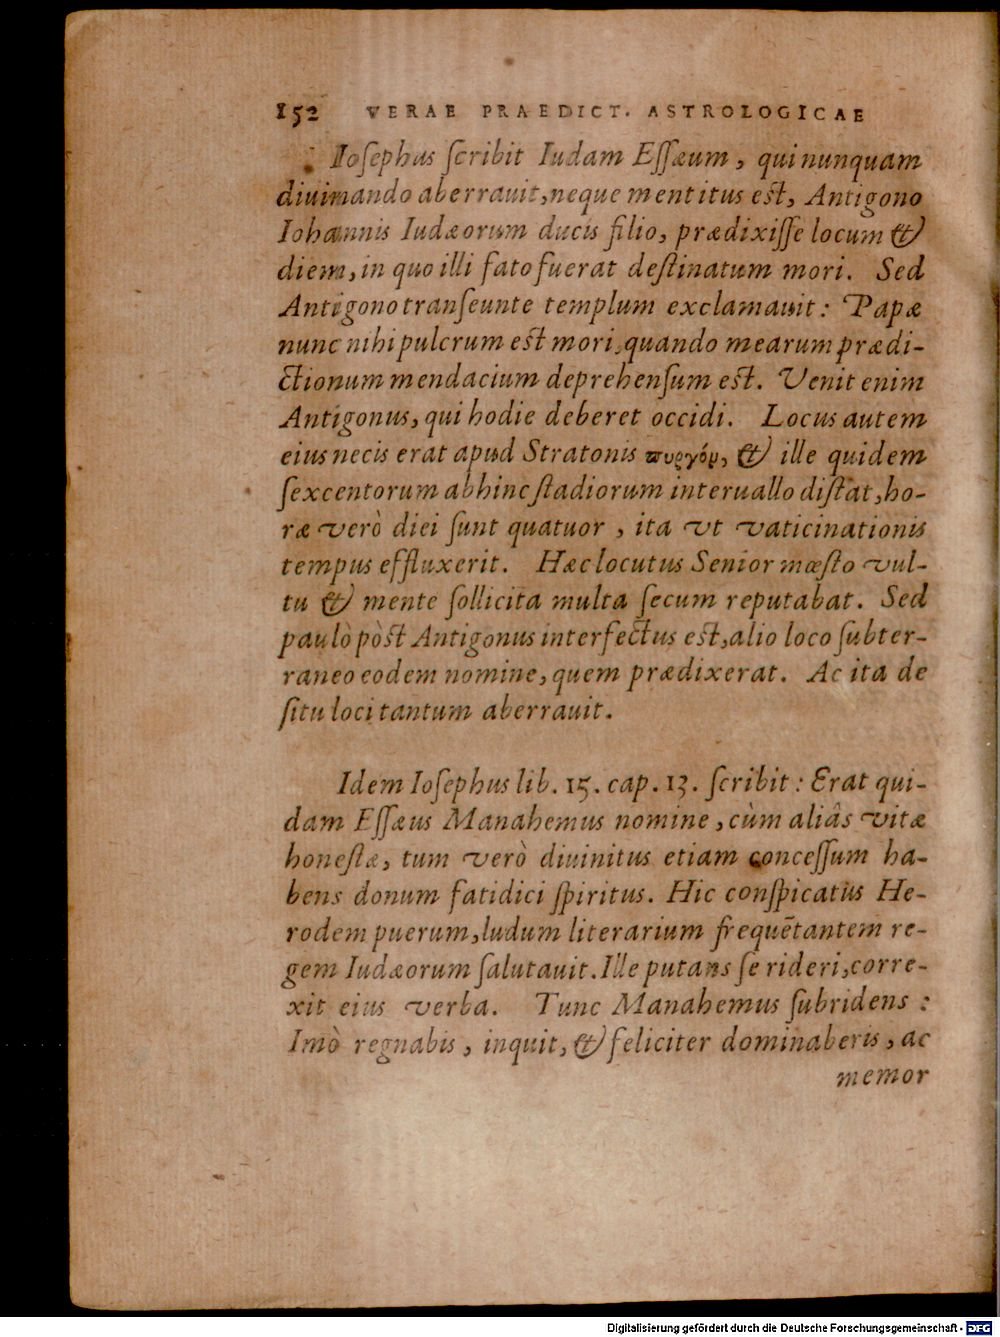 152 VERAE PRAEDICT. ASTROLOGICAE
Ioſephus ſcribit Iudam Eſſæum, qui nunquam
diuinando aberrauit, neque mentitus est, Antigono
Iohannis Iudæorum ducis filio, prædixiſſe locum &
diem, in quo illi fato fuerat deſtinatum mori. Sed
Antigono tranſeunte templum exclamauit: Papæ
nunc nihi pulcrum est mori, quando mearum prædi-
ctionum mendacium deprehenſum est. Venit enim
Antigonus, qui hodie deberet occidi. Locus autem
eius necis erat apud Stratonis πυργόν, & ille quidem
ſexcentorum abhinc ſtadiorum interuallo diſtat, ho-
ræ verò diei ſunt quatuor, ita vt vaticinationis
tempus effluxerit. Hæc locutus Senior mœſto vul-
tu & mente ſollicita multa ſecum reputabat. Sed
paulò pòst Antigonus interfectus est, alio loco ſubter-
raneo eodem nomine, quem prædixerat. Ac ita de
ſitu loci tantum aberrauit.
Idem Ioſephus lib. 15. cap. 13. ſcribit: Erat qui-
dam Eſſæus Manahemus nomine, cùm aliâs vitæ
honeſtæ, tum verò diuinitus etiam conceſſum ha-
bens donum fatidici ſpiritus. Hic conſpicatus He-
rodem puerum, ludum literarium frequẽtantem re-
gem Iudæorum ſalutauit. Ille putans ſe rideri, corre-
xit eius verba. Tunc Manahemus ſubridens:
Imò regnabis, inquit, & feliciter dominaberis, ac
memor
Digitalisierung gefördert durch die Deutsche Forschungsgemeinschaft - DFG